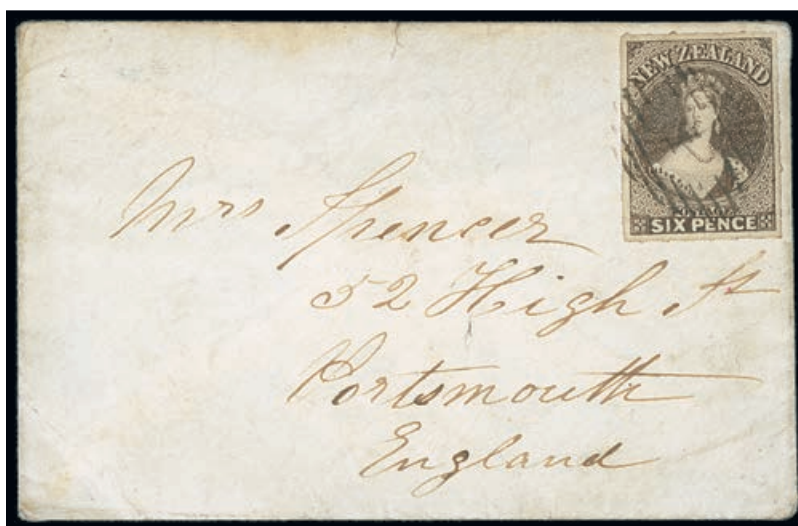 NEW ZEALAND
POSTAGE
SIX PENCE
Mrs Spencer
52 High St
Portsmouth
England